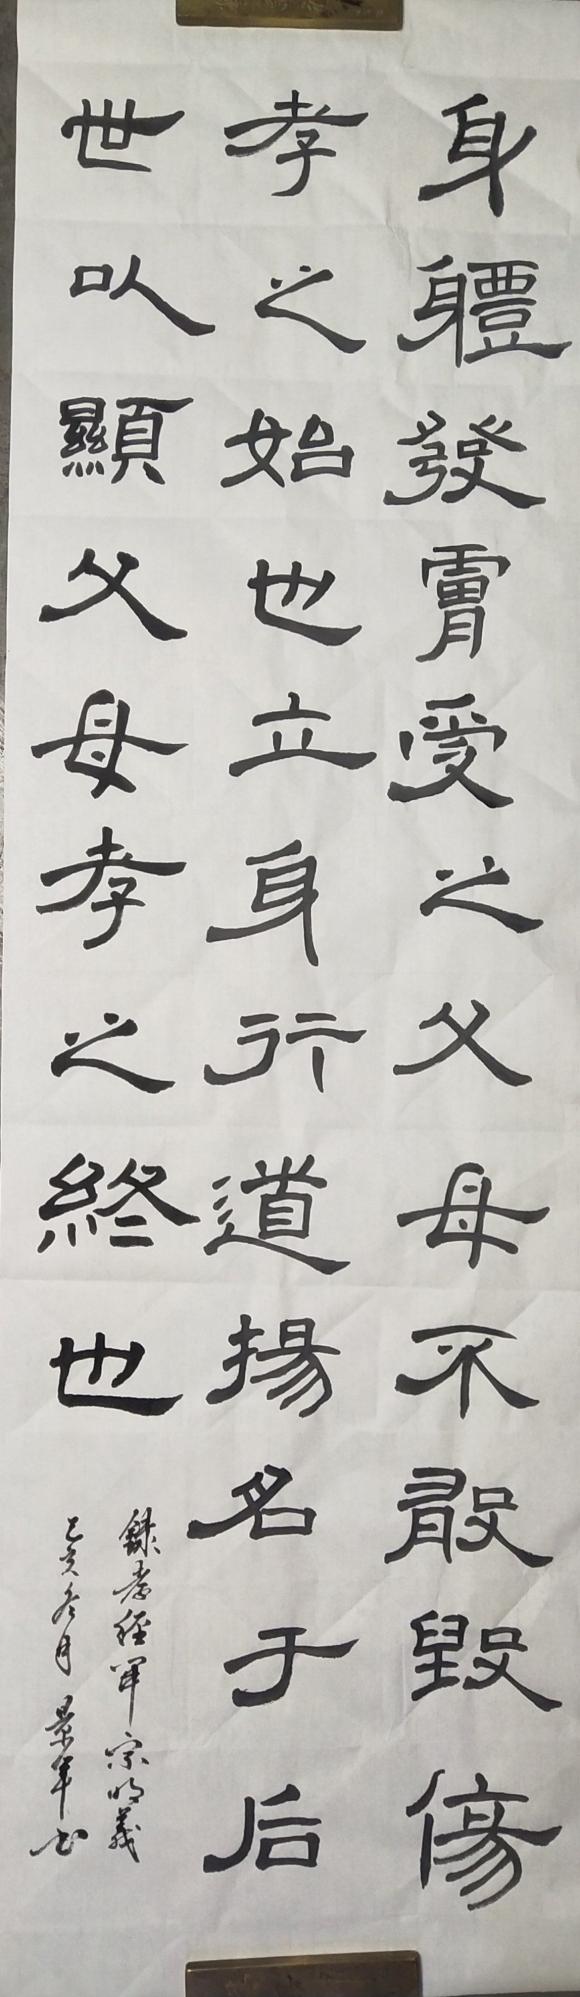 身軆發膚受之父母不敢毀傷
孝之始也立身行道揚名于后
世以顯父母孝之終也
錄孝經開宗明義
己亥冬月 景軍书